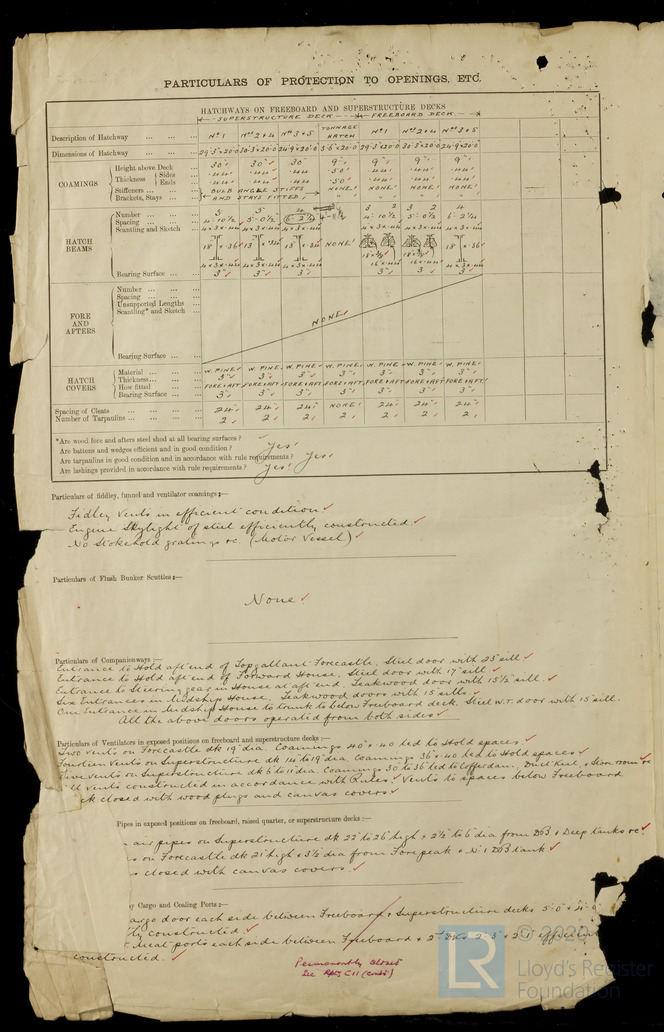 PARTICULARS OF PROTECTION TO OPENINGS, ETC.
HATCHWAYS ON FREEBOARD AND SUPERSTRUCTURE DECKS
SUPERSTRUCTURE DECK FREEBOARD DECK
Description of Hatchway ... ... ... No 1 Nos 2 & 4 Nos 3 & 5 TONNAGE HATCH No 1 Nos 2 & 4 Nos 3 & 5
Dimensions of Hatchway ... ... 29'3"x20'0 30'3"x20'0 24'9"x20'0 5'6"x20'0 29'3"x20'0 30'3"x20'0 24'9"x20'0
COAMINGS
Height above Deck ... 30" 30" 30" 9" 9" 9" 9"
Thickness Sides ... .44 .44 .44 .50 .44 .44 .44
Ends ... .44 .44 .44 .50 .44 .44 .44
Stiffeners ... ... BULB ANGLE STIFFS NONE NONE NONE NONE
Brackets, Stays ... ... AND STAYS FITTED " " " "
HATCH BEAMS
Number ... ... 5 5 4 3 2 3 2 4
Spacing ... ... 4'-10½ 5'-0½ 6'-2¼ 4'-11½ 4'-10½ 5'-0½ 6'-2¼
Scantling and Sketch ... 4x3x.44 4x3x.44 4x3x.44 4x3x.44 4x3x.44 4x3x.44
18 x .36 18 x .34 NONE 18 x .36
4x3x.44 4x3x.44 4x3x.44 16x.44 16x.44 4x3x.44
Bearing Surface ... ... 3" 3" 3" 3" 3 3"
FORE AND AFTERS
Number ... ... ...
Spacing ... ... ...
Unsupported Lengths ...
Scantling* and Sketch ...
NONE
Bearing Surface ... ...
HATCH COVERS
Material ... ... ... W. PINE W. PINE W. PINE W. PINE W. PINE W. PINE W. PINE
Thickness... ... ... 3" 3" 3" 3" 3" 3" 3"
How fitted ... ... FORE & AFT FORE & AFT FORE & AFT FORE & AFT FORE & AFT FORE & AFT FORE & AFT
Bearing Surface ... ... 3" 3" 3" 3" 3" 3" 3"
Spacing of Cleats ... ... ... ... 24" 24" 24" NONE 24" 24" 24"
Number of Tarpaulins ... ... ... 2 2 2 2 2 2 2
*Are wood fore and afters steel shod at all bearing surfaces?
Are battens and wedges efficient and in good condition? Yes
Are tarpaulins in good condition and in accordance with rule requirements? Yes
Are lashings provided in accordance with rule requirements? Yes
Particulars of fiddley, funnel and ventilator coamings:—
Fidley Vents in efficient condition
Engine Skylight of steel efficiently constructed
No Stokehold gratings &c. (Motor Vessel)
Particulars of Flush Bunker Scuttles:—
None
Particulars of Companionways:—
Entrance to Hold aft end of Topgallant Forecastle, Steel door with 25" sill
Entrance to Hold aft end of Forward House, Steel door with 17" sill
Entrance to Steering gear in House at aft end, Teakwood door with 15½ sill.
Six Entrances in Midship House, Teakwood doors with 15" sills
One Entrance in Midship House to trunk to below Freeboard deck, Steel W.T. door with 15" sill
All the above doors operated from both sides
Particulars of Ventilators in exposed positions on freeboard and superstructure decks:—
Two vents on Forecastle dk 19" dia. Coamings 40" x .40 led to Hold spaces
Fourteen vents on Superstructure dk 14" to 19" dia. Coamings 36" x .40 led to Hold spaces
vents on Superstructure dk 6 to 11" dia. Coamings 30 to 36" led to Cofferdam, Duct Keel, & Store room &c
vents constructed in accordance with Rules Vents to spaces below Freeboard
ck closed with wood plugs and canvas covers
Pipes in exposed positions on freeboard, raised quarter, or superstructure decks:—
air pipes on Superstructure dk 22" to 26" high x 2½" to 6" dia from DB & Deep tanks &c
s on Forecastle dk 21" high x 3½ dia from Fore peak & No 1 DB tank
closed with canvas covers
y Cargo and Coaling Ports:—
argo door each side between Freeboard & Superstructure decks 5'-0" x 4'-
ly constructed.
Meat ports each side between Freeboard & 2nd Dks 2'-3" x 2'-1" efficient
constructed.
Permanently closed
See Rpt C11 (cont)
© 2020
LR
Lloyd's Register
Foundation